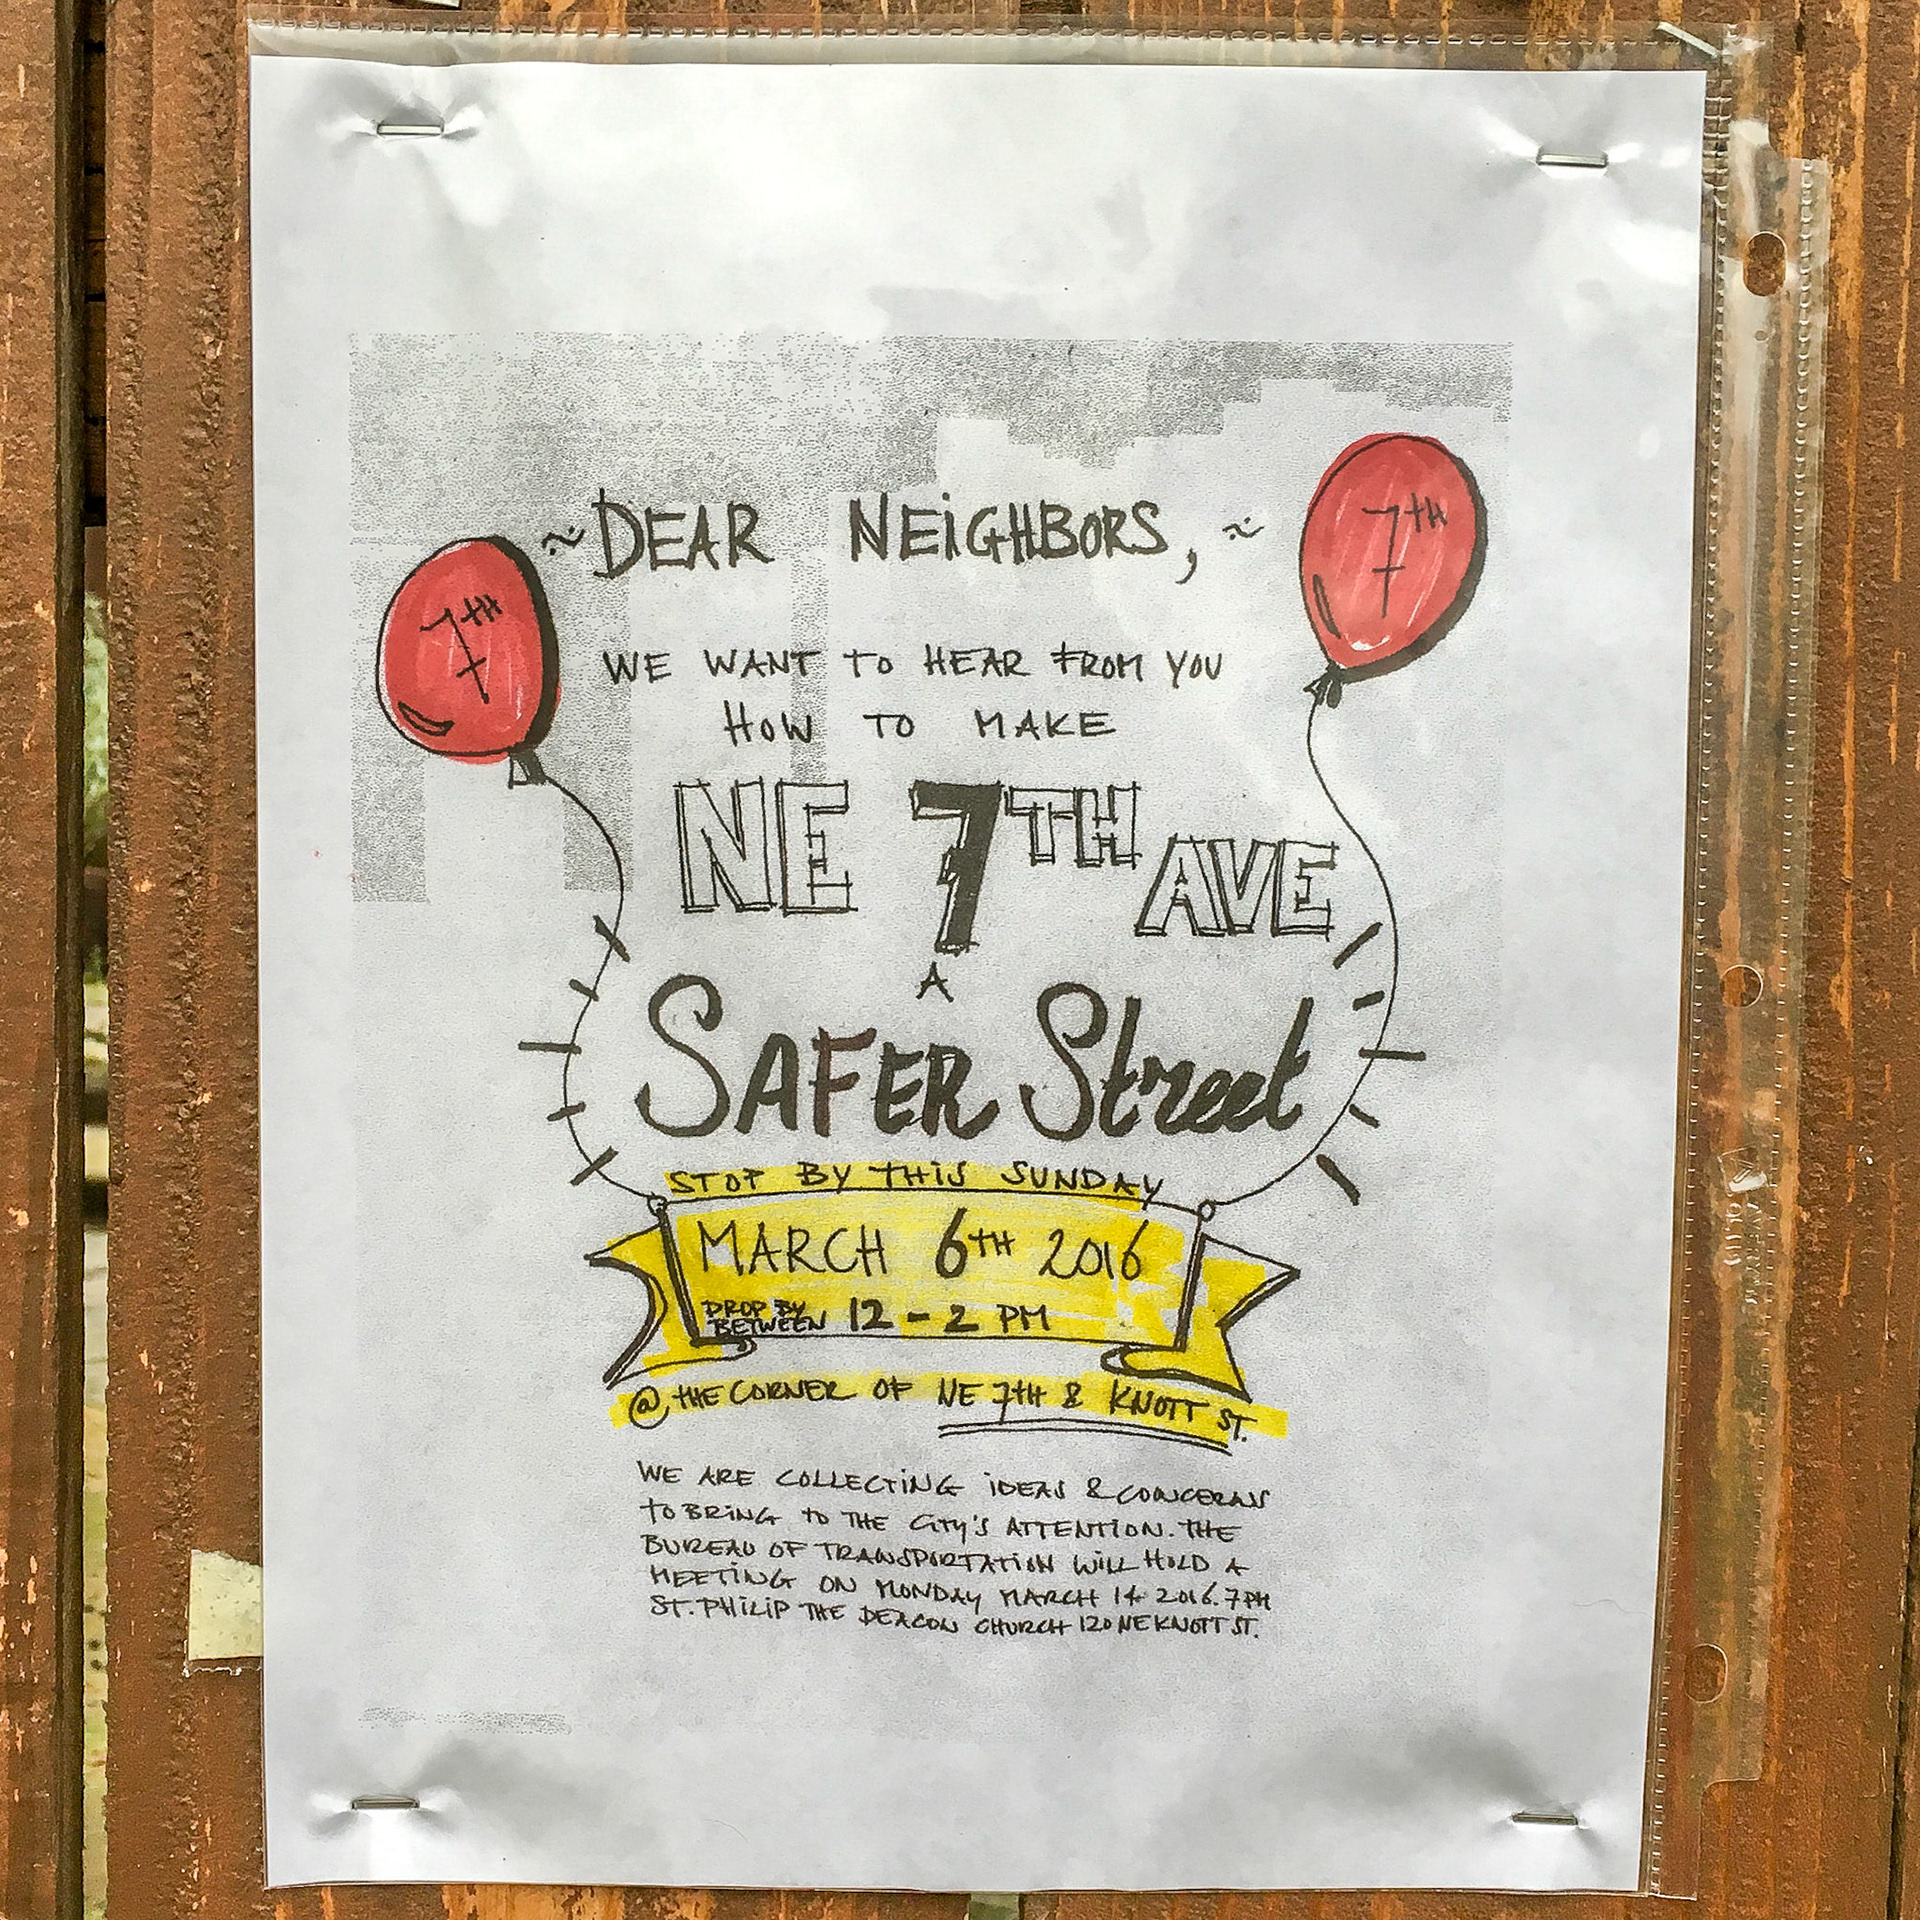 ~ DEAR NEIGHBORS, ~
7TH
7TH
WE WANT TO HEAR FROM YOU
HOW TO MAKE
NE 7TH AVE
A
SAFER Street
STOP BY THIS SUNDAY
MARCH 6TH 2016
DROP BY
BETWEEN 12 - 2 PM
@ THE CORNER OF NE 7TH & KNOTT ST.
WE ARE COLLECTING IDEAS & CONCERNS
TO BRING TO THE CITY'S ATTENTION. THE
BUREAU OF TRANSPORTATION WILL HOLD A
MEETING ON MONDAY MARCH 14 2016. 7PM
ST. PHILIP THE DEACON CHURCH 120 NE KNOTT ST.